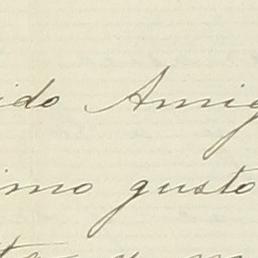 ido Amig
imo gusto